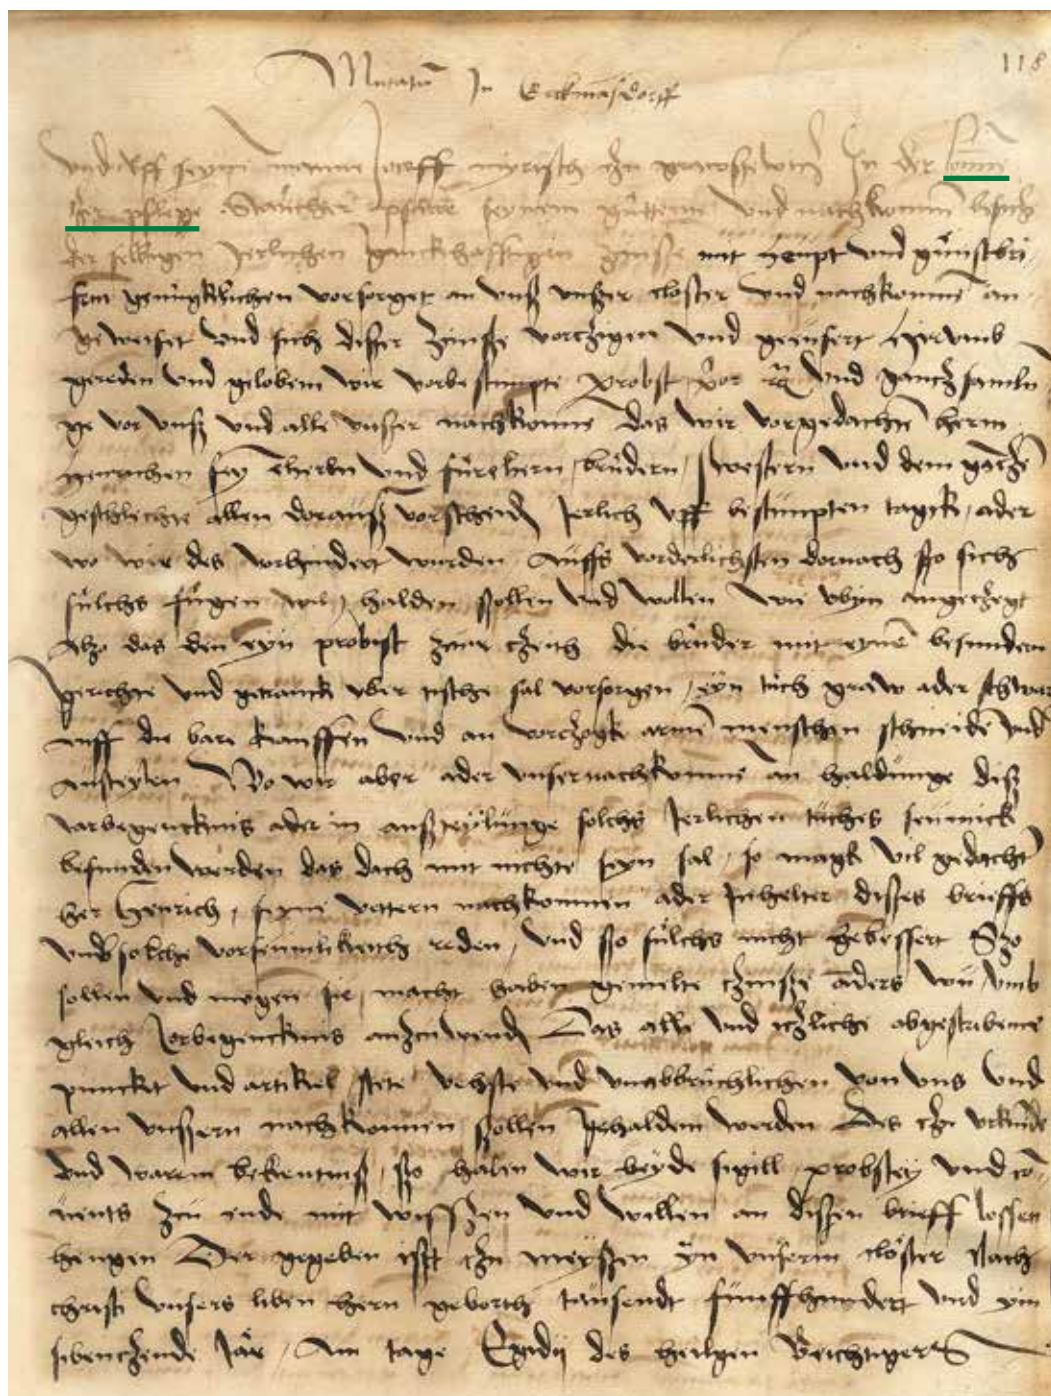 118
Mutatum In Erckmaßdorff
und uff seyn manne Joceff myrisch czu In der
der pflege pfarre seynem und nachkomen
der selbigen Jerlichen zinße mit heupt und gunstbri
fenn genugklichen vorsorget an unß unßer closter und nachkomen an
geweiset und sich disser zinße vorczigen und geeusert hirumb
gereden und geloben wir vorbestimpte probst und gancz samlu
ge vor unß und alle unser nachkomen das wir vorgedachten herrn
henrichen sey eltern und furelltern brudern swestern und dem gancze
geschlechte allen dorauß vorscheiden Jerlich uff bestimpten tagk ader
wo wir des vorhindert wurden auffs vorderlichsten dornach sso sichs
sulchs fugen wil halden sollen und wollen wie obyn angeczeigt
also das den eyn probist zcur czeith die bruder mit eyne besundern
gerichte und getranck uber tissche sal vorsorgen eyn tuch graw ader schwar
uff die bare kauffen und an vorczogk arme menschen schneide und
austeylen Wo wir aber ader unser nachkomen an haldunge diß
Jarbegencknis ader in außteylunge solchs Jerlichen tuches seumick
befunden werden das doch mit nichte seyn sal so magk vil gedacht
her Henrich seyne vettern nachkomen ader Inhelter disses brieffs
umb solche vorseumlikeith reden und sso sulchs nicht gebessert Szo
sollen und mogen sie macht haben gemelte czinße anders wu umb
gleich Jorbegencknis anzcuwenden Das alle und iczliche abgeschribene
punckt und artikel stete vehste und unabbruchlichen von uns und
allen unßern nachkomen sollen Gehalden werden Des czu urkunde
und warem bekentniß sso haben wir beyde sigill probstey und co
nents zcu ende mit wissen und willen an dissen brieff lossen
hengen Der gegeben ist czu meyßen yn unßerm closter Nach
christi unsers liben hern geborth tausendt funffhundert und ym
sibenczende Jar Am tage Egidij des heilgen Beichtigers